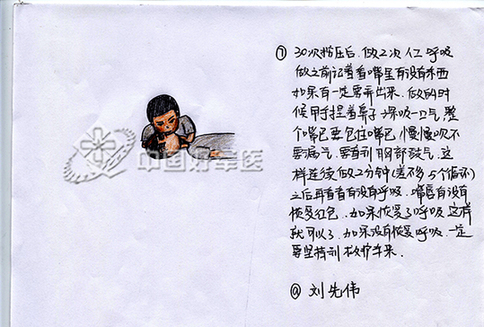 ⑦ 30次按压后.做2次人工呼吸
做之前记着看嘴里有没有东西
如果有一定要弄出来.做的时
候用手捏着鼻子深吸一口气.整
个嘴巴要包住嘴巴.慢慢吹不
要漏气.要看到胸部鼓气.这
样连续做2分钟(差不多5个循环)
之后再看看有没有呼吸.嘴唇有没有
恢复红色.如果恢复了呼吸这样
就可以了.如果没有恢复呼吸.一定
要坚持到救护车来.
@ 刘先伟
中国好军医